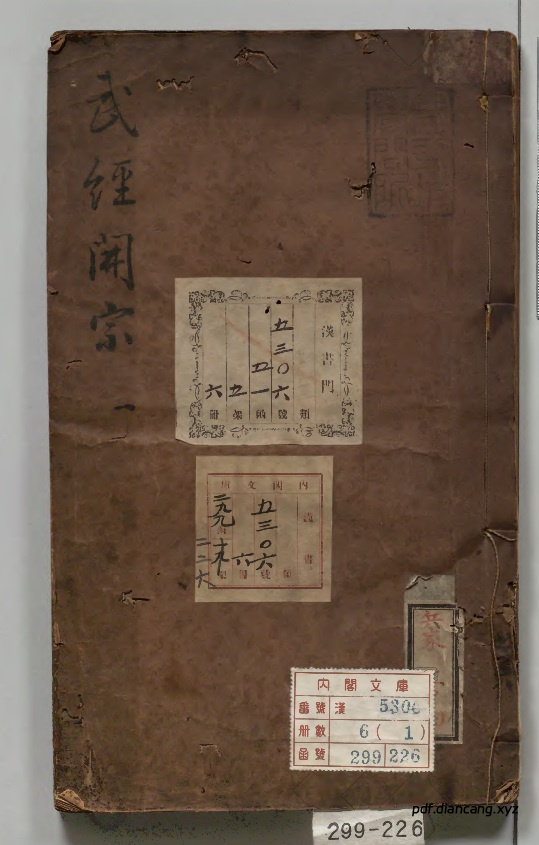 武經開宗 一
漢書門
五三〇六
五一
五
六
類
號
函
架
冊
內閣文庫
漢書
五三〇六
六
二九九
二二六
兵家
內閣文庫
番號 漢 5306
冊數 6(1)
函號 299 226
299-226
pdf.diancang.xyz